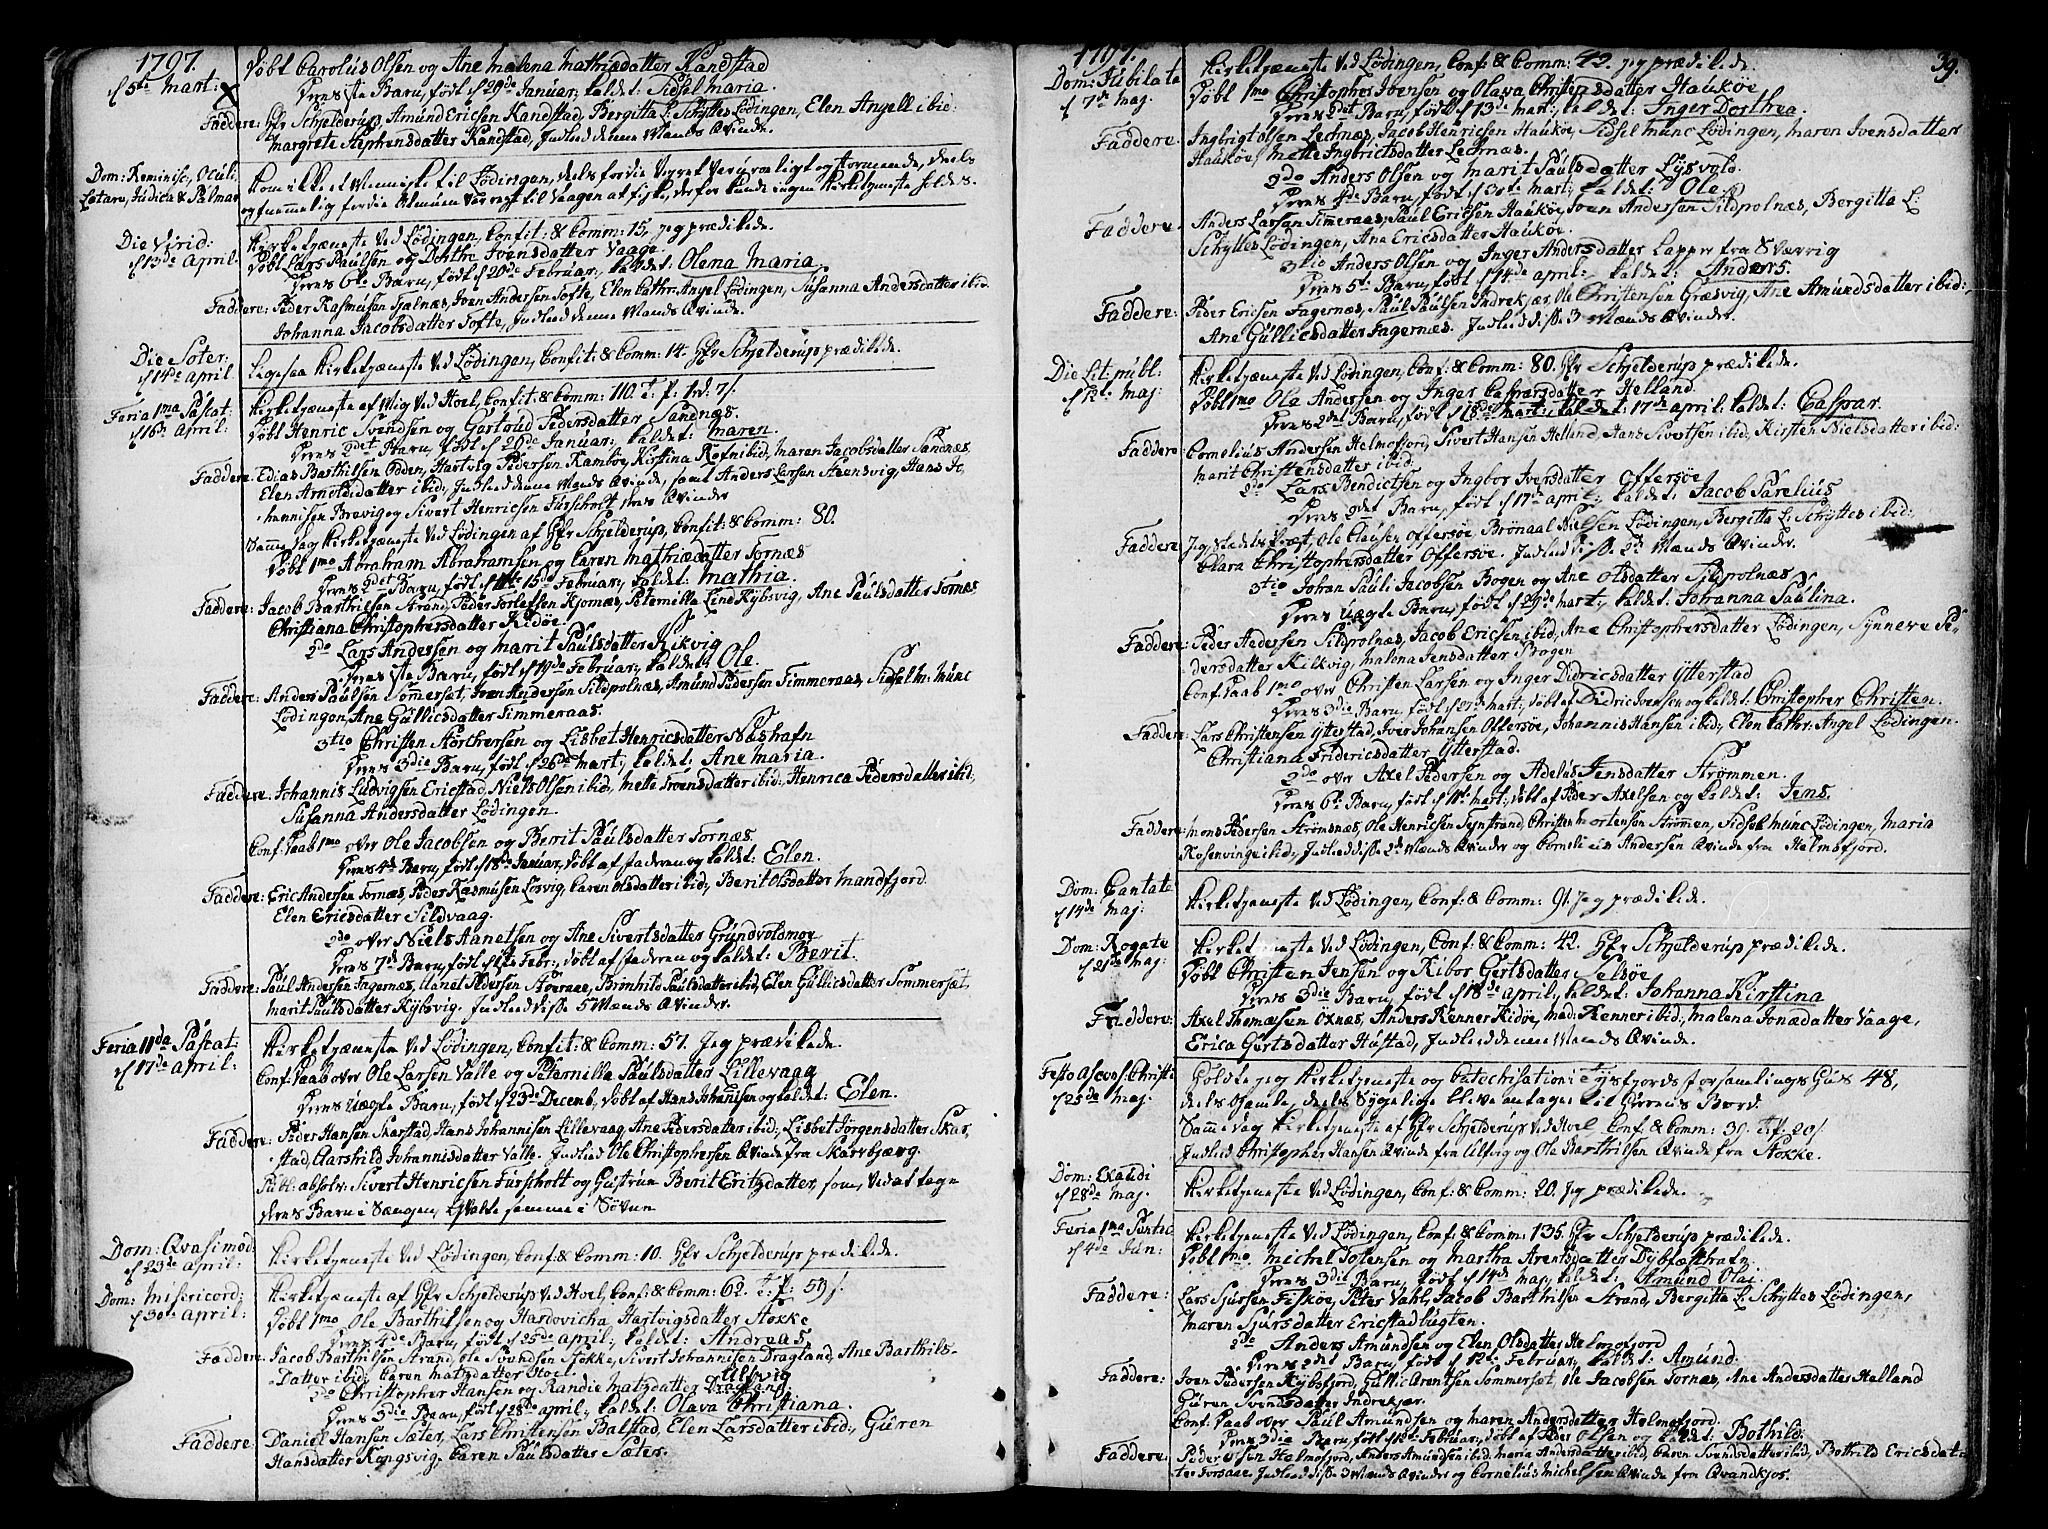 1797.
d 5te Mart:
Døbt Carolus Olsen og Ane Malena Mathiædatter Kandstad
Deres 1ste Barn, født d 29de Januar; kaldet: Sidsel Maria.
Faddere: Hr Schjelderup, Amund Ericsen Kandstad, Bergitta L: Schyttes Lödingen, Elen Angell ibid:
Margrete Stephensdatter Kandstad, Indleed denne Mands Qvinde.
Dom: Reminisc:, Oculi,
Letare, Judica & Palmar
Kom ikke et Menniske til Lödingen, deels fordie Veyret var uroeligt og stormende, deels
og fremmelig fordie Almuen var reyst til Vaagen at fiske, derfor kunde ingen Kirketjeneste holdes.
Die Virid:
d 13de April:
Kirketjeneste ved Lödingen, Confit: & Comm: 15, jeg prædikede.
Døbt Lars Paulsen og Dorthe Ivensdatter Vaage.
Deres 6te Barn, født d 20de Februar; kaldet: Olena Maria.
Faddere: Peder Rasmusen Fjelnæs, Iven Andersen Tofte, Elen Cathr: Angel Lödingen, Susanna Andersdatter ibid.
Johanna Jacobsdatter Tofte, Indleed denne Mands Qvinde.
Die Soter:
d 14de April
Ligesaa Kirketjeneste ved Lödingen, Confit: & Comm: 14. Hr Schjelderup prædikede.
Feria 1ma Pascat:
d 16de April:
Kirketjeneste af Mig ved Hoel, Confit: & Comm: 110
Døbt Henric Svendsen og Gørtrud Pedersdatter Sandnæs.
Deres 2det Barn, født d 20de Januar; kaldet: Maren.
Faddere: Edias Barthilsen Odden, Hartvig Pedersen Ramboe, Kirstina Ross ibid, Maren Jacobsdatter Sandnæs,
Elen Arnoldsdatter ibid; Indleed denne Mands Qvinde, samt Anders Larsen Steensvig, Hans Jo-
hannisen Brevig og Sivert Henricsen Furscholt deres Qvinder
Samme dag Kirketjeneste ved Lödingen af Hr Schjelderup, Confit: & Comm: 80.
Døbt 1mo Abraham Abrahamsen og Caren Mathiædatter Tornæs
Deres 2det Barn, født d 15de Februar; kaldet: Mathia.
Faddere: Jacob Barthilsen Strand, Peder Torlefsen Kjornæs, Peternilla Lind Kybsvig, Ane Paulsdatter Tornæs
Christiana Christophersdatter Ridöe.
2do Lars Andersen og Marit Paulsdatter Kilkvig
Deres 1ste Barn, født d 19de Februar; kaldet: Ole.
Faddere: Anders Paulsen Sommersæt, Iven Andersen Sildpolnæs, Amund Pedersen Timmeraas, Sidsel M: Munc
Lödingen, Ane Gullicsdatter Timmeraas.
3tio Christen Storthersen og Lisbet Henricsdatter Næshafn
Deres 3die Barn, født d 26de Mart; kaldet: Ane Maria.
Faddere: Johannis Ludvigsen Ericstad, Niels Olsen ibid, Mette Troensdatter ibid:, Henrica Pedersdatter ibid,
Susanna Andersdatter Lödingen
Conf: Daab 1mo over Ole Jacobsen og Berit Paulsdatter Tornæs
Deres 4de Barn, født d 18de Januar, døbt af Faderen og kaldet: Elen.
Faddere: Eric Andersen Tornæs, Peder Rasmusen Losvig, Caren Olsdatter ibid:, Berit Olsdatter Mandfjord
Elen Ericsdatter Sildvaag.
2do over Niels Aanetsen og Ane Sivertsdatter Grundvoldsmoe
Deres 7de Barn, født d 1ste Febr:, døbt af faderen og kaldet: Berit.
Faddere: Paul Pedersen Fagernæs, Daniel Pedersen Storraae, Brønhild Paulsdatter ibid, Elen Gullicsdatter Sommersæt,
Marit Paulsdatter Kybsvig. Indleed disse 5 Mænds Qvinder.
Feria 11da Pascat:
d 17de April:
Kirketjeneste ved Lödingen, Confit: & Comm: 57. Jeg prædikede.
Conf: Daab over Ole Larsen Valle og Peternilla Paulsdatter Lillevaag
Deres Uægte Barn, født d 23de Decemb, døbt af Hans Johannisen og kaldet: Elen.
Faddere: Peder Hansen Skarstad, Hans Johannisen Lillevaag, Ane Pedersdatter ibid:, Lisbet Jørgensdatter Skar-
stad, Aarshild Johannisdatter Valle. Indleed Ole Christophersen Qvinde fra Skarvbjærg.
Publ: absolv: Sivert Henricsen Furscholt og Gustrue Berit Eritzdatter, som, ved at tage
deres Barn i Sængen, qvalte samme i Søvne
Dom: Qvasimod:
d 23de April:
Kirketjeneste ved Lödingen, Conf: & Comm: 10. Hr Schjelderup prædikede.
Dom: Misericord:
d 30te April:
Kirketjeneste af Hr Schjelderup ved Hoel, Conf: & Comm: 62. t: p: 59 s.
Døbt 1mo Ole Barthilsen og Hardovicha Hartvigsdatter Stokke
Deres 4de Barn, født d 25de April; kaldet: Andreas.
Faddere: Jacob Barthilsen Strand, Ole Svendsen Stokke, Sivert Johannisen Dragland, Ane Barthils-
Datter ibid, Caren Matzdatter Stoel.
2do Christopher Hansen og Randie Matzdatter Ulsvig
Dragland
Deres 3die Barn, født d 28de April; kaldet: Olava Christiana.
Faddere: Daniel Hansen Sæter, Lars Christensen Balstad, Elen Larsdatter ibid:, Guren
Hansdatter Kongsvig, Caren Paulsdatter Sæter.
1797.
39.
Dom: Jubilate
d 7de Maj.
Kirketjeneste ved Lödingen, Conf: & Comm: 42. jeg prædikede.
Døbt 1mo Christopher Ivensen og Olava Christensdatter Haukøe
Deres 2det Barn, født d 13de Mart; kaldet: Inger Dorthea.
Faddere: Ingbrigt Olsen Lechnæs, Jacob Henricsen Haukøe, Sidsel Munc Lödingen, Maren Ivensdatter
Haukøe, Mette Ingbrictsdatter Lechnæs.
2do Anders Olsen og Marit Paulsdatter Lysvold.
Deres 4de Barn, født d 31te Mart; kaldet: Ole.
Faddere: Anders Larsen Timeraas, Paul Ericsen Haukøe, Iven Andersen Sildpolnæs, Bergitta L:
Schyttes Lödingen, Ane Ericsdatter Haukøe.
3tio Anders Olsen og Inger Andersdatter Lapper fra Sværrig
Deres 5te Barn, født d 14de April: kaldet: Anders.
Faddere: Peder Ericsen Fagernæs, Paul Paulsen Indrekjær, Ole Christensen Græsvig, Ane Amundsdatter ibid:,
Ane Gullicsdatter Fagernæs. Indleed disse 3 Mænds Qvinder.
Die Lit: publ.
d 12te Maj.
Kirketjeneste ved Lödingen, Conf: & Comm: 80. Hr Schjelderup prædikede.
Døbt 1mo Ole Andersen og Inger Casparsdatter Helland
Deres 2det Barn, født d 17de April: kaldet: Caspar.
Faddere Cornelius Andersen Helmofjord, Sivert Hansen Helland, Hans Sivertsen ibid, Kirsten Nielsdatter ibid:
Marit Christensdatter ibid.
2do Lars Bendictsen og Ingbor Iversdatter Offersøe
Deres 2det Barn, født d 17de April; kaldet: Jacob Parelius
Faddere, Jeg Stædets Præst, Ole Clausen Offersøe, Brønaal Nielsen Lödingen, Bergitta L: Schyttes ibid:
Clara Christophersdatter Offersøe. Indleed disse 2de Mænds Qvinder.
3tio Johan Pauli Jacobsen Bogen og Ane Olsdatter Sildpolnæs
Deres Uægte Barn, født d 29de Mart; kaldet: Johanna Paulina.
Faddere: Peder Pedersen Sildpolnæs, Jacob Ericsen ibid, Ane Christophersdatter Lödingen, Synneve Pe-
dersdatter Kilkvig, Malena Jensdatter Bogen
Conf: Daab 1mo over Christen Larsen og Inger Didricsdatter Ytterstad
Deres 3die Barn, født d Mart; døbt af Didric Ivensen og kaldet: Christopher Christen.
Faddere: Lars Christensen Ytterstad, Iver Johansen Offersøe, Johannis Hansen ibid:, Elen Cathr: Angel Lödingen.
Christiana Fridericsdatter Ytterstad.
2do over Axel Pedersen og Adelus Jensdatter Strømmen.
Deres 6te Barn, født d 11te Mart; døbt af Peder Axelsen og kaldet: Jens.
Faddere: Mons Pedersen Strømsnæs, Ole Henricsen Feynstrand, Christen Mortensen Strømmen, Sidsel Munc Lödingen, Maria
Rosenvinge ibid:, Indleed disse 2de Mænds Qvinder og Cornelius Andersen Qvinde fra Helmofjord.
Dom: Cantate
d 14de Maj.
Kirketjeneste ved Lödingen, Conf: & Comm: 91. Jeg prædikede.
Dom: Rogate
d 21de Maj:
Kirketjeneste ved Lödingen, Conf: & Comm: 42. Hr Schjelderup prædikede.
Døbt Christen Jensen og Ribor Gertsdatter Selsøe
Deres 3die Barn, født d 18de April; kaldet: Johanna Kirstina
Faddere: Axel Thomæsen Oxnæs, Anders Renner Ridøe, Mad: Renner ibid:, Malena Jonædatter Vaage,
Erica Gertsdatter Hustad, Indleed denne Mands Qvinde.
Festo Ascens: Christi
d 25de Maj:
Holdte jeg Kirketjeneste og Catechisation i Tysfjords Forsamlings Huus 48,
deels Gamle, deels Sygelige blive antagne til Herrens Bord.
Samme dag Kirketjeneste af Hr Schjelderup ved Hoel, Conf: & Comm: 39. t: p: 20 s.
Indleed Christopher Hansen Qvinde fra Ulsvig og Ole Barthilsen Qvinde fra Stokke.
Dom: Exaudi
d 28de Maj.
Kirketjeneste ved Lödingen, Conf: & Comm: 20. Jeg prædikede.
Feria 1ma Pentec
d 4de Jun:
Kirketjeneste ved Lödingen, Conf: & Comm: 135. Hr Schjelderup prædikede.
Døbt 1mo Michel Tostensen og Martha Arentsdatter Dybfæsthafn
Deres 3die Barn, født d 14de Maj; kaldet: Amund Olai.
Faddere: Lars Sjursen Fiskøe, Peter Vahl, Jacob Barthilsen Strand, Bergitta L: Schyttes Lödingen,
Maren Sjursdatter Ericstadbugten.
2do Anders Amundsen og Elen Olsdatter Helmofjord
Deres 2det Barn, født d 12te Februar, kaldet: Amund.
Faddere: Iven Pedersen Kybsfjord, Gullic Arentsen Sommersæt, Ole Jacobsen Tornæs, Ane Andersdatter Helland
Guren Svendsdatter Indrekjær.
Conf: Daab over Paul Amundsen og Maren Andersdatter Helmofjord.
Deres 3die Barn, født d Februar; døbt af Peder Olsen og kaldet: Bothild:
Faddere: Peder Olsen Helmofjord, Anders Amundsen ibid: Maria Andersdatter ibid, Caren Svendsdatter ibid, Bothild Ericsdat-
ter Forsaae. Indleed disse 3 Mænds Qvinder og Cornelius Michelsen Qvinde fra Qvandkjos.